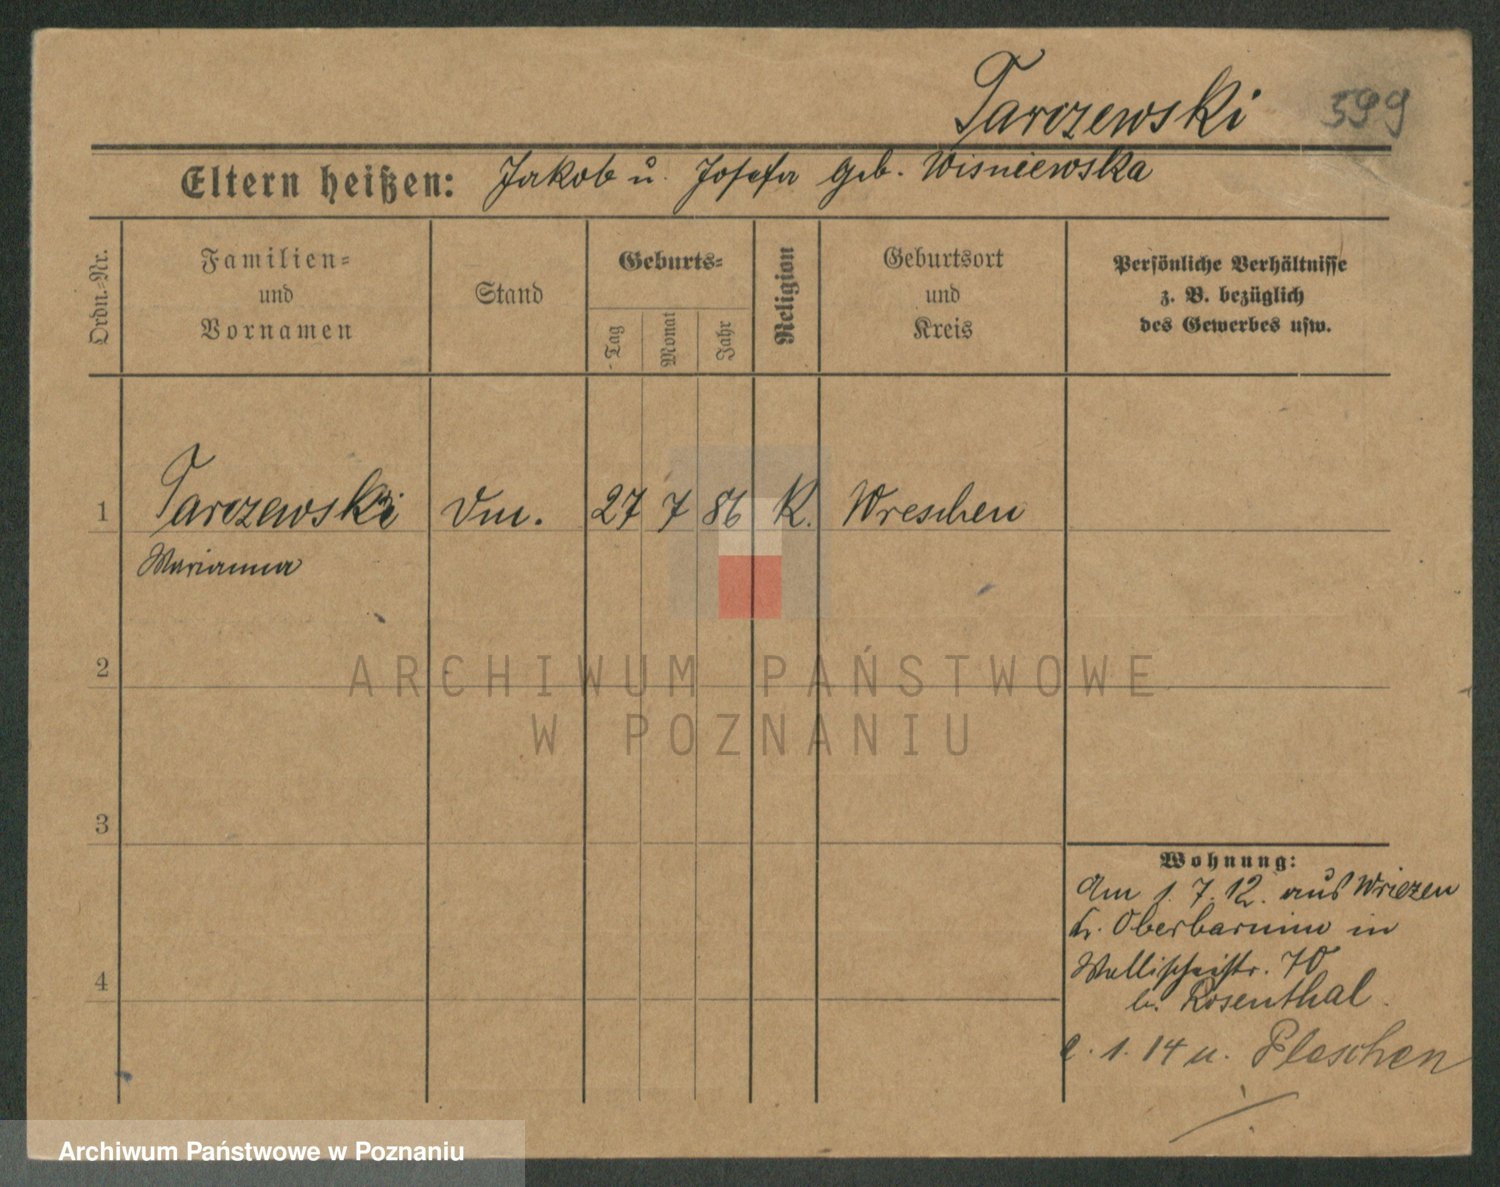 Tarczewski 599
Eltern heißen: Jakob u. Josefa geb. Wisniewska
Ordn.-Nr.
Familien-
und
Vornamen
Stand
Geburts-
Tag
Monat
Jahr
Religion
Geburtsort
und
Kreis
Persönliche Verhältnisse
z. B. bezüglich
des Gewerbes usw.
1 Tarczewski Dm. 27 7 86 K. Wreschen
Marianna
2
ARCHIWUM PAŃSTWOWE
W POZNANIU
3
Wohnung:
Am 1. 7. 12. aus Wriezen
Kr. Oberbarnim in
Wallischeistr. 70
b. Rosenthal.
1. 14 n. Pleschen
4
Archiwum Państwowe w Poznaniu